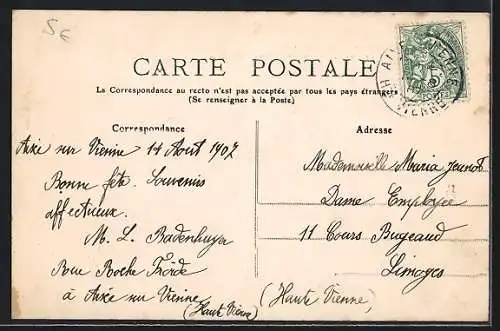 5€
CARTE POSTALE
La Correspondance au recto n'est pas acceptée par tous les pays étrangers
(Se renseigner à la Poste)
Correspondance
Aixe sur Vienne 14 Août 1907
Bonne fête. Souvenirs
affectueux.
M. L. Badenhuyer
Rue Roche Froide
à Aixe sur Vienne
(Haute Vienne)
Adresse
Mademoiselle Maria Jeunot
Dame Employée
11 Cours Bugeaud
Limoges
(Haute Vienne)